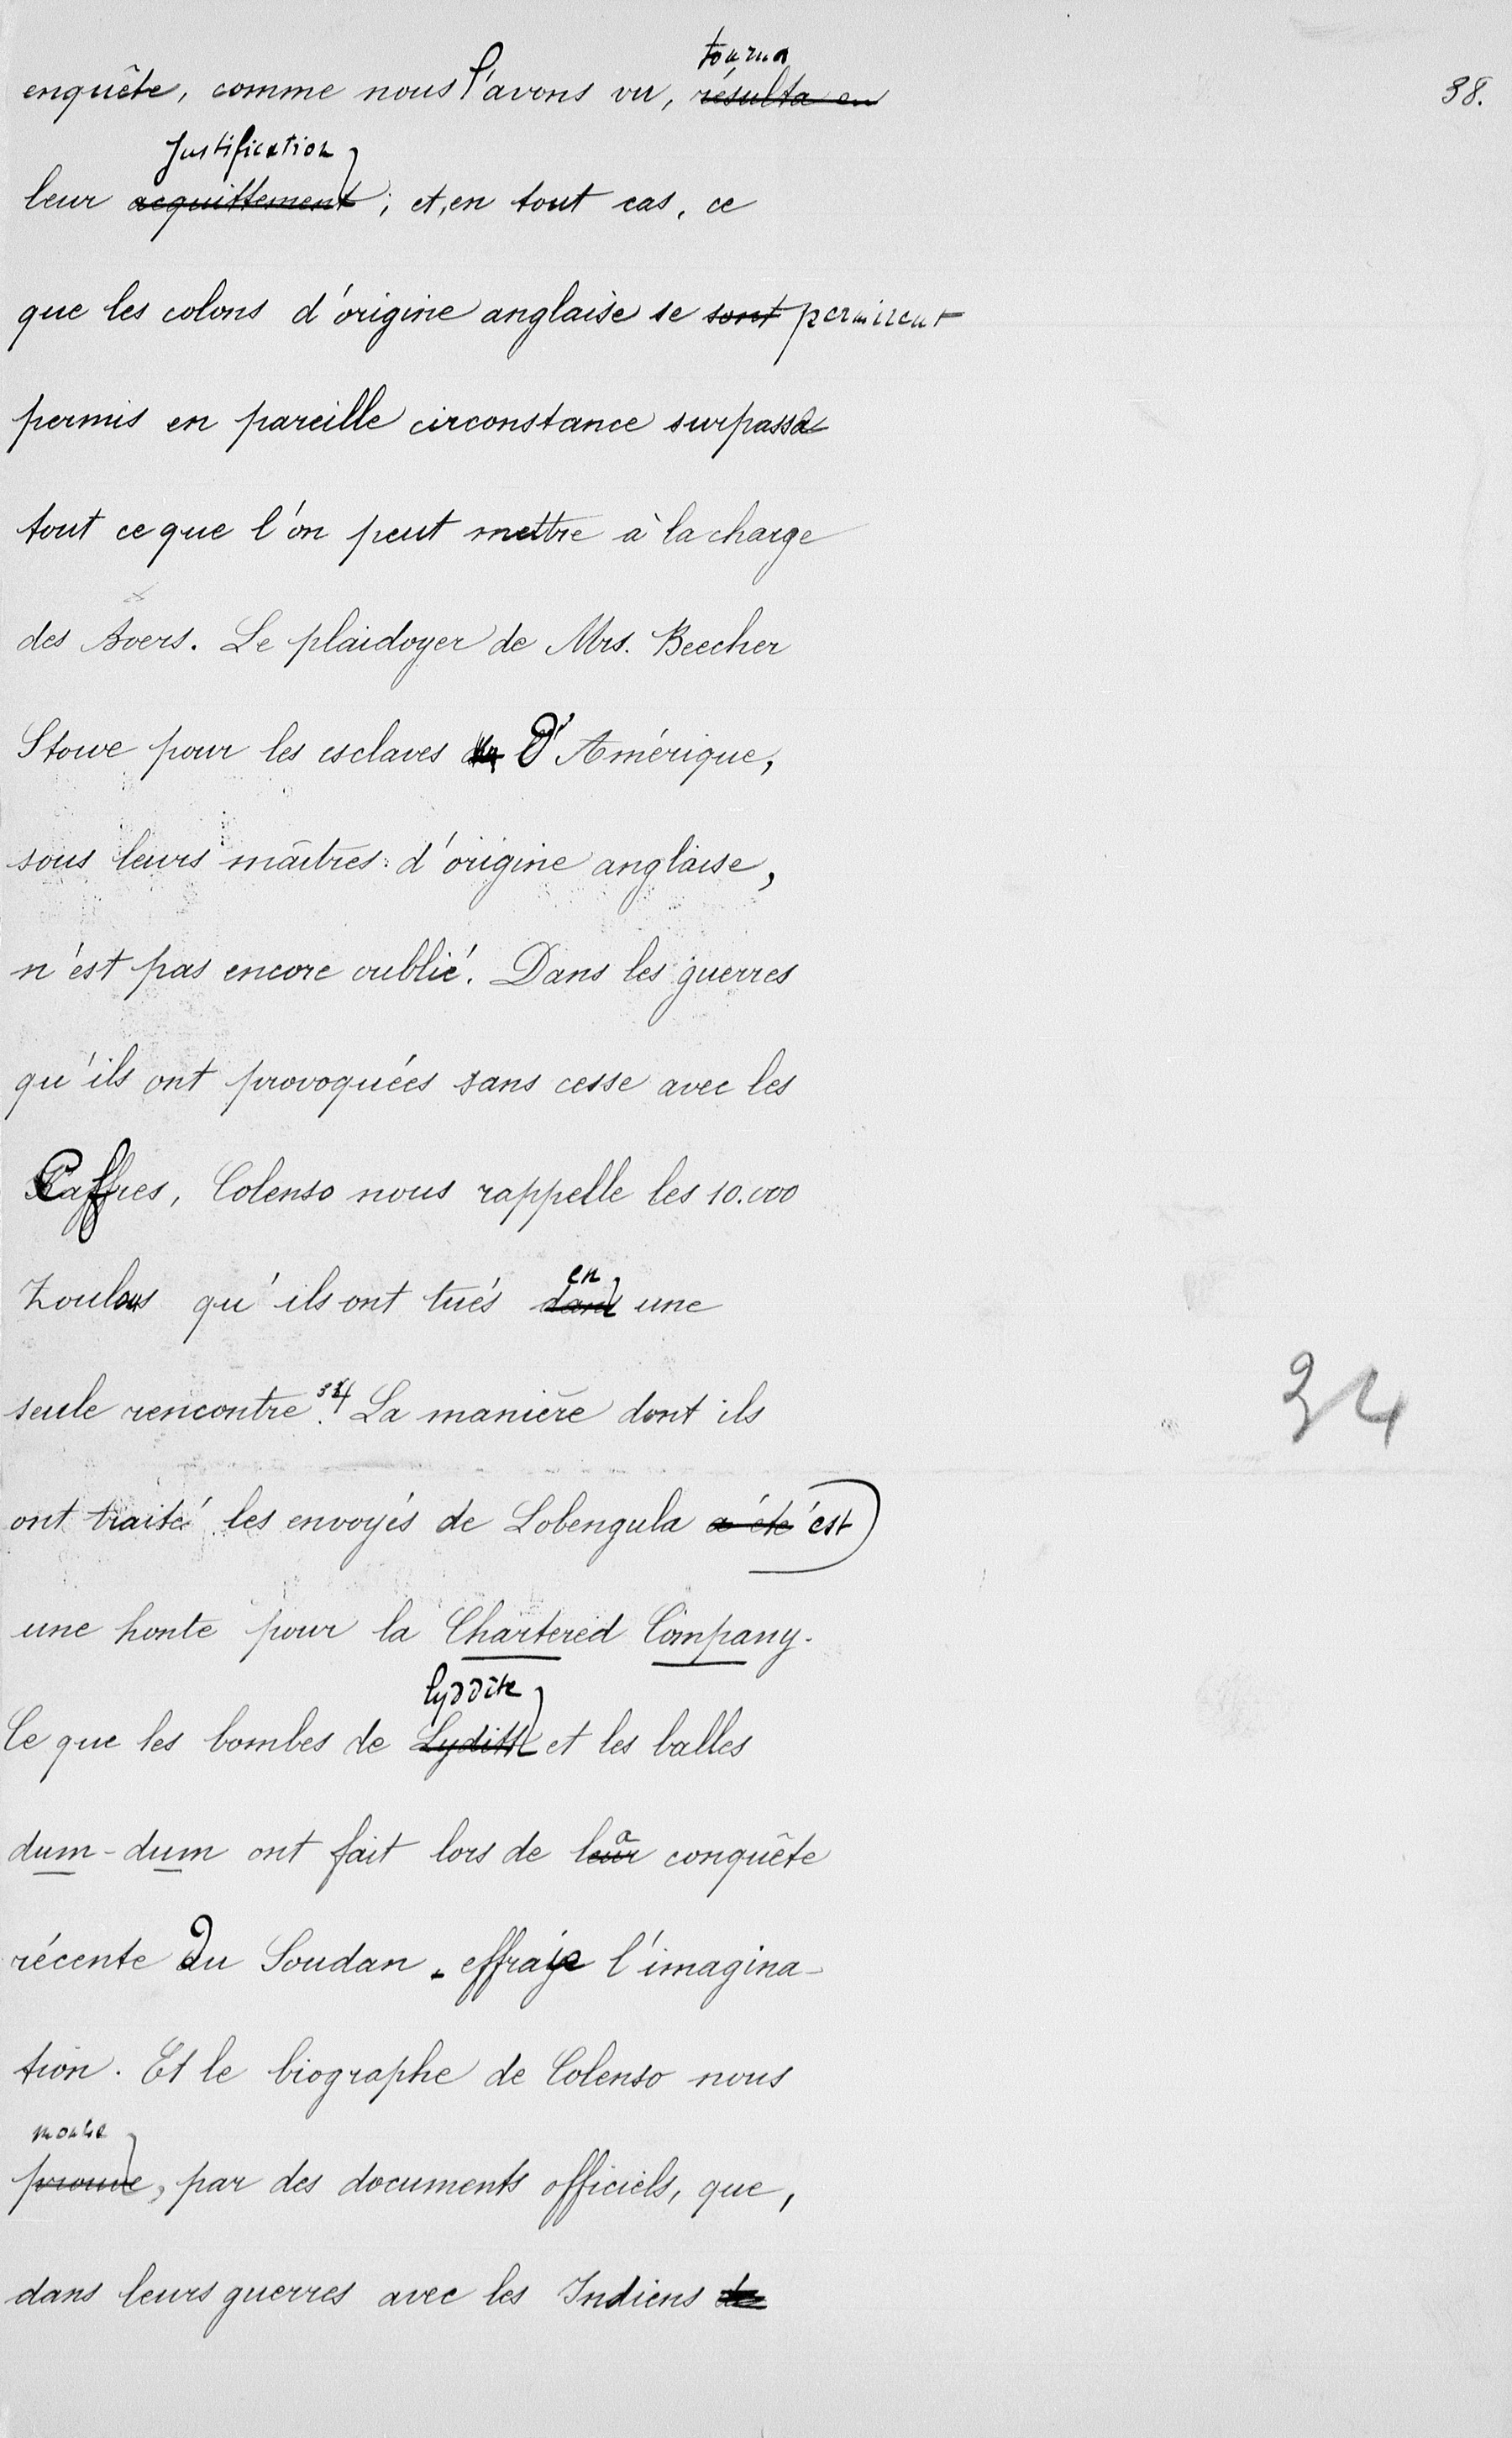 tourna
enquête, comme nous l'avons vu, résulta en
38.
justification
leur acquittement; et, en tout cas, ce
que les colons d'origine anglaise se sont permirent
permis en pareille circonstance surpassa
tout ce que l'on peut mettre à la charge
des Boers. Le plaidoyer de Mrs. Beecher
Stowe pour les esclaves d'Amérique,
sous leurs maîtres d'origine anglaise,
n'est pas encore oublié. Dans les guerres
qu'ils ont provoquées sans cesse avec les
Caffres, Colenso nous rappelle les 10.000
en
Zoulous qu'ils ont tués dans une
seule rencontre.34 La manière dont ils
34
ont traité les envoyés de Lobengula a été est
une honte pour la Chartered Company.
lyddite
Ce que les bombes de Lyditt et les balles
a
dum-dum ont fait lors de leur conquête
récente du Soudan effraie l'imagina-
tion. Et le biographe de Colenso nous
montre
prouve, par des documents officiels, que,
dans leurs guerres avec les Indiens de